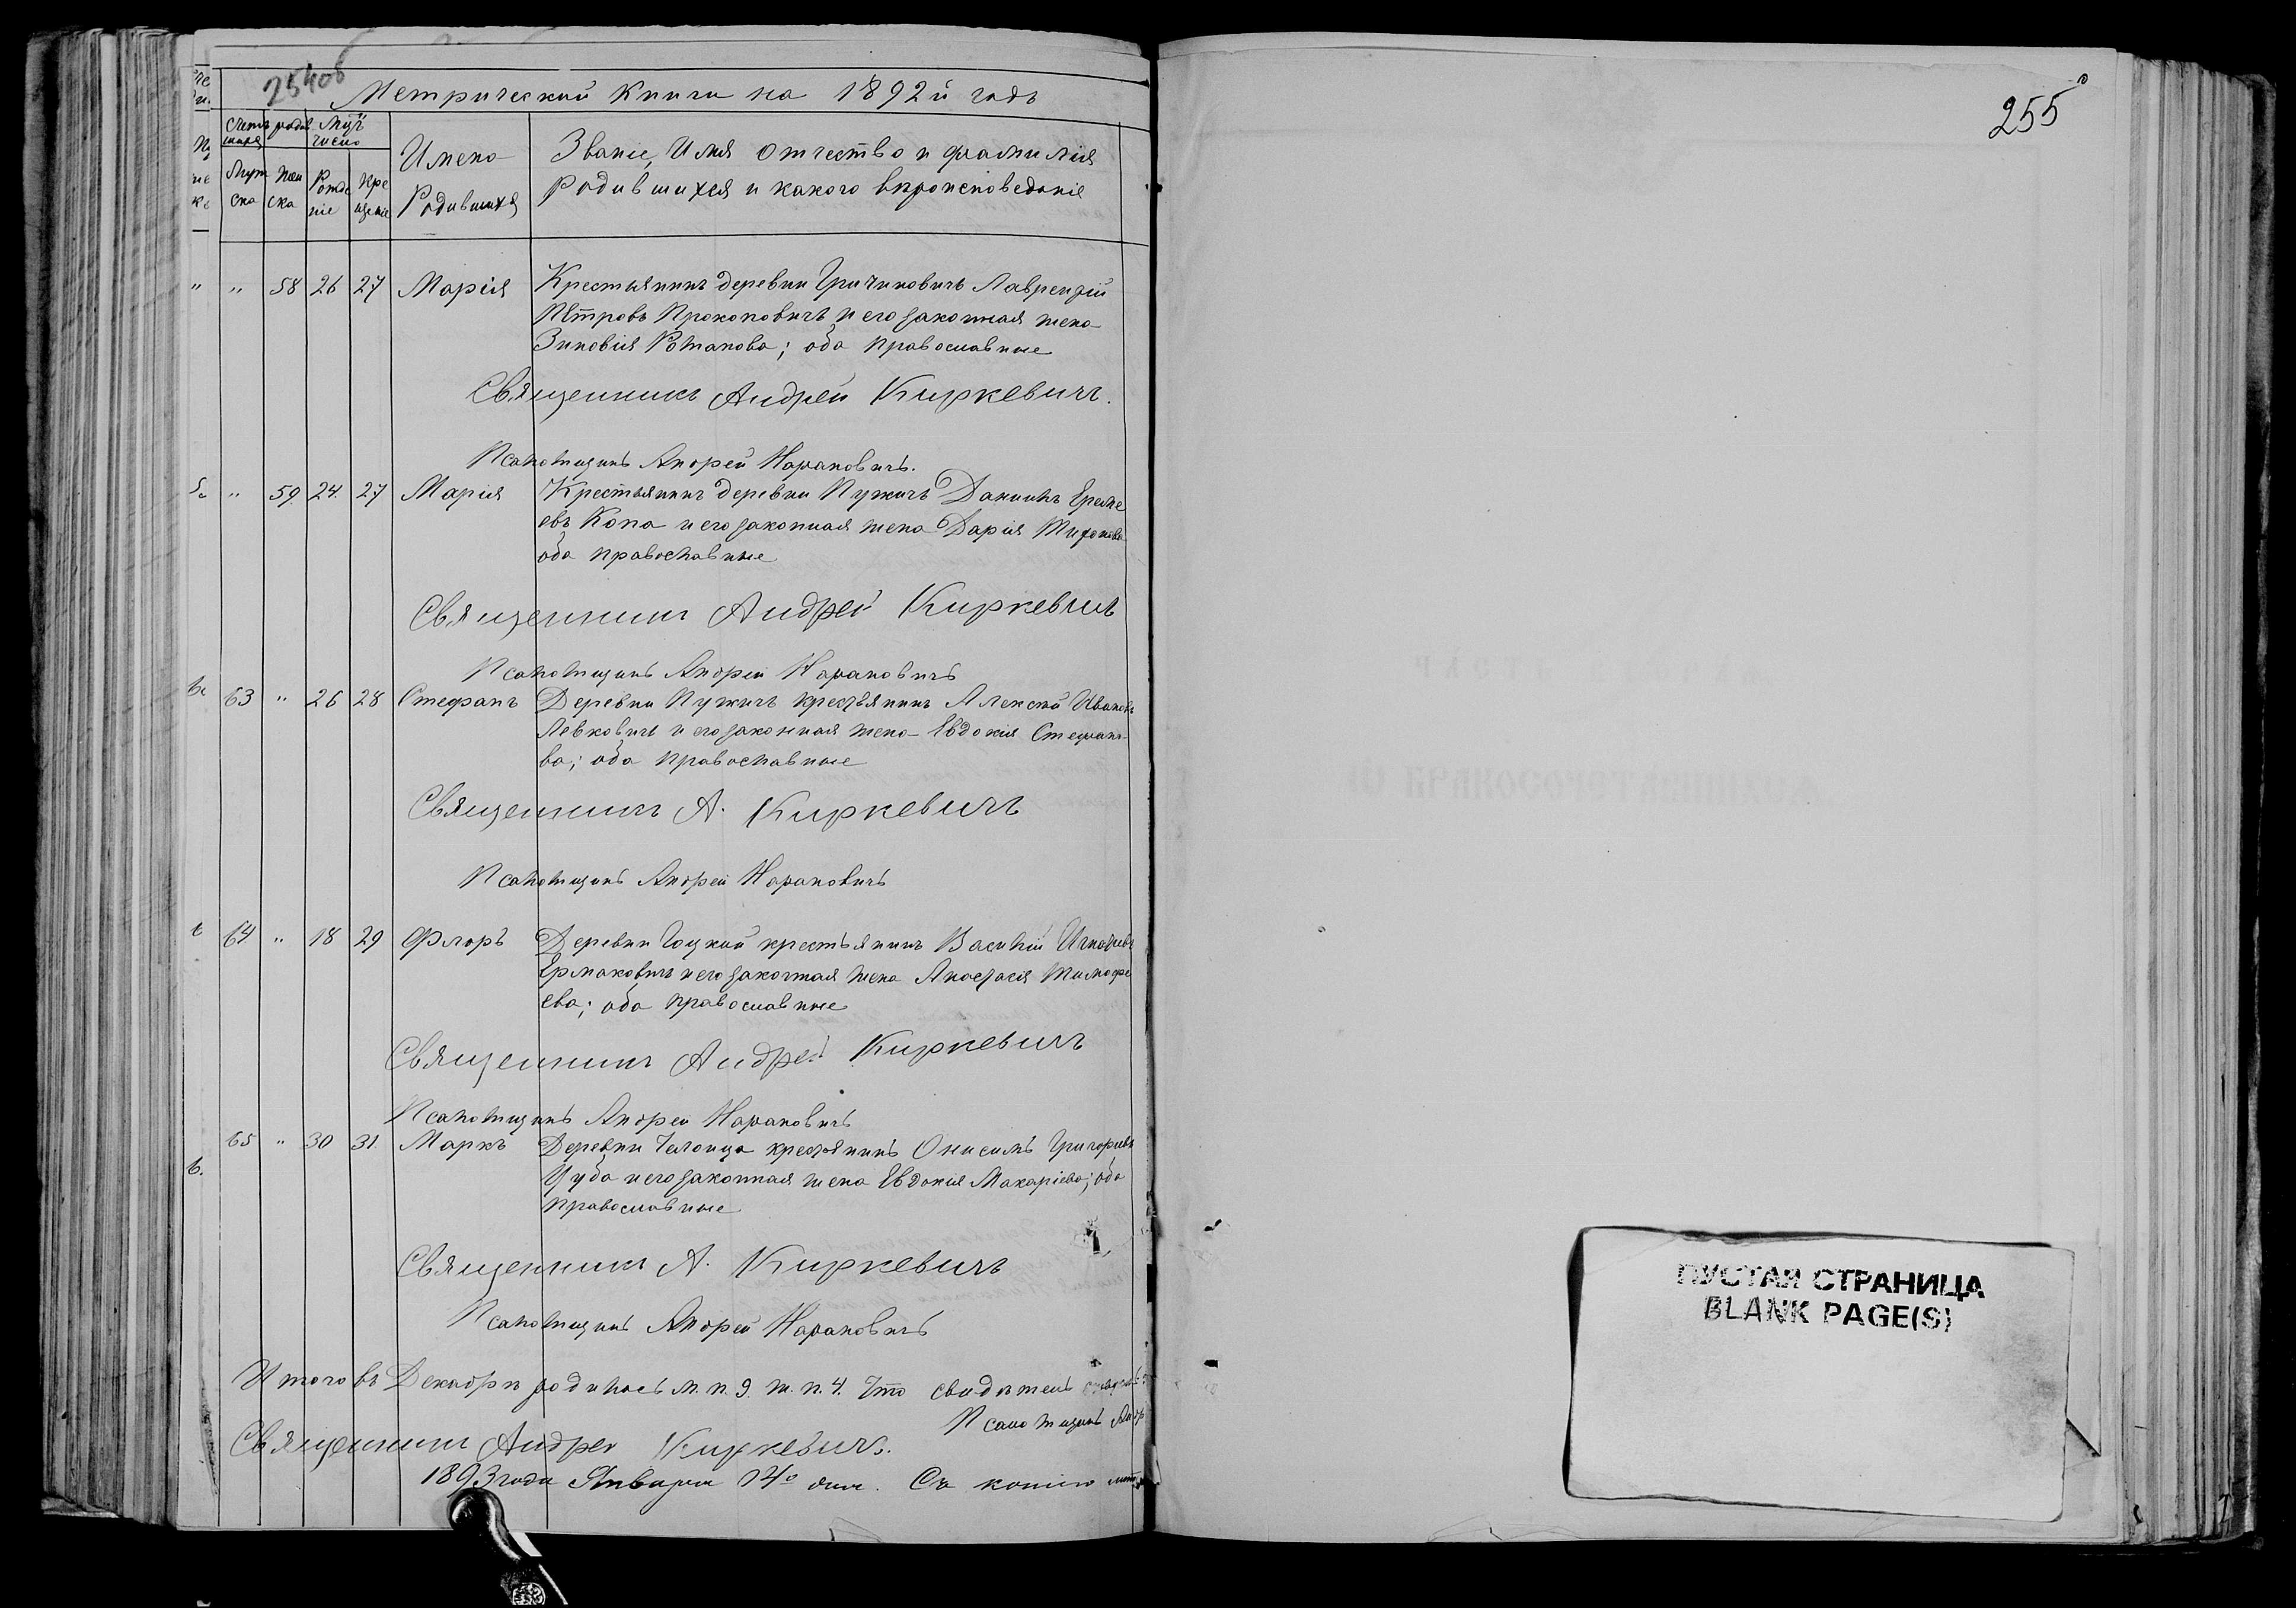 254об
Метрической Книги на 1892й годъ
Счетъ родив Мцъ
шихся число
Муж Жен Рожде Кре
ска ска ніе щеніе
Имена
Родившихся
Званіе, Имя отчество и фамилія
Родившихся и какого вѣроисповеданія
" 58 26 27 Марія Крестьянинъ деревни Гричиновичъ Лаврентій
Петровъ Прокоповичъ и его законная жена
Зиновія Потапова; оба православные
Священникъ Андрей Киркевичъ.
Псаломщикъ Андрей Нарановичъ.
" 59 24 27 Марія Крестьянинъ деревни Пужичъ Даниилъ Ереме
евъ Копа и его законная жена Дарія Тихонова
оба православные
Священникъ Андрей Киркевичъ
Псаломщикъ Андрей Нарановичъ
63 " 26 28 Стефанъ Деревни Пужичъ крестьянинъ Алексѣй Ивановъ
Левковичъ и его законная жена Евдокія Стефано-
ва; оба православные
Священникъ А. Киркевичъ
Псаломщикъ Андрей Нарановичъ
64 " 18 29 Флоръ Деревни Гоцкой крестьянинъ Василій Игнатьевъ
Ермаковичъ и его законная жена Анастасія Тимофе
ева; оба православные
Священникъ Андрей Киркевичъ
Псаломщикъ Андрей Нарановичъ
65 " 30 31 Маркъ Деревни Челонца крестьянинъ Онисимъ Григорьевъ
Цуба и его законная жена Евдокія Макаріева; оба
православные
Священникъ А. Киркевичъ
Псаломщикъ Андрей Нарановичъ
Итого въ Декабрѣ родилось м. п. 9. ж. п. 4. Что свидѣтель
Псаломщикъ Андр
Священникъ Андрей Киркевичъ.
1893 года Января 14º дня. Съ копіею
255
ПУСТАЯ СТРАНИЦА
BLANK PAGE(S)